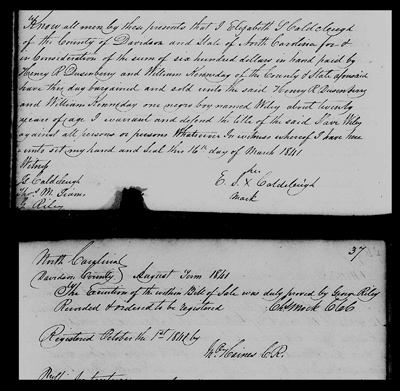 Know all men by these presents that I Elizabeth S Caldcleugh
of the County of Davidson and State of North Carolina for &
in Consideration of the sum of six hundred dollars in hand paid by
Henry R Dusenberry and William Kenneday of the County & State aforesaid
have this day bargained and sold unto the said Henry R Dusenberry
and William Kenneday one negro boy named Wiley about twenty
years of age I warrant and defend the title of the said Slave Wiley
against all persons or persons Whatever In witness whereof I have here
unto set my hand and Seal this 16th day of March 1841
Witness
her
G Caldcleugh
E. S. X Caldcleugh
Mark
Riley
37
North Carolina
Davidson County } August Term 1841
The Execution of the within Bill of Sale was duly proved by Geo Riley
Recorded & ordered to be registered Chs Mock Clk
Registered October the 1st 1841 by
Haines C.R.